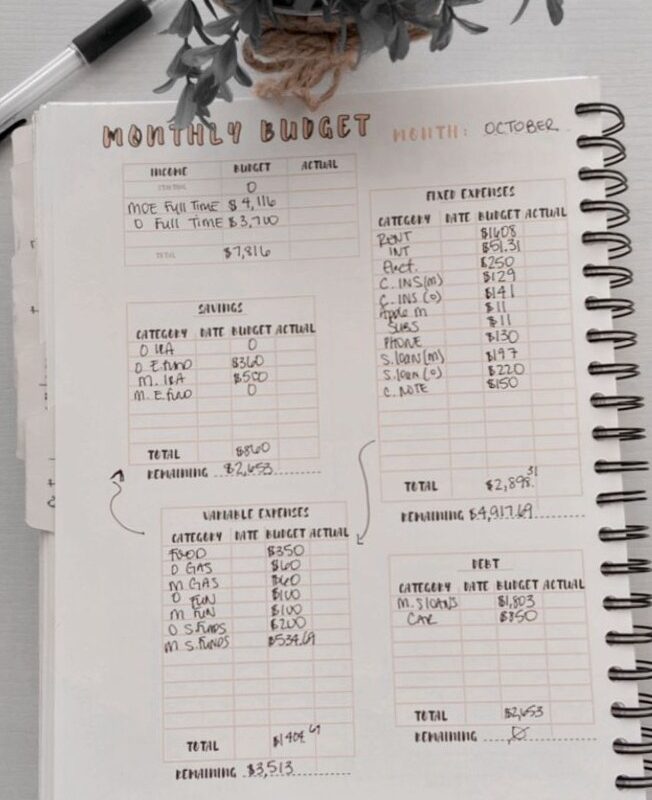 MONTHLY BUDGET
MONTH: OCTOBER
INCOME BUDGET ACTUAL
0
MOE Full Time $4,116
O Full Time $3,700
TOTAL $7,816
SAVINGS
CATEGORY DATE BUDGET ACTUAL
O IRA 0
O E.fund $360
M. IRA $500
M. E.fund 0
TOTAL $860
REMAINING $2,653
VARIABLE EXPENSES
CATEGORY DATE BUDGET ACTUAL
FOOD $350
O GAS $60
M GAS $60
O FUN $100
M FUN $100
O S.FUNDS $200
M S.FUNDS $534.69
TOTAL $1404 69
REMAINING $3,513
FIXED EXPENSES
CATEGORY DATE BUDGET ACTUAL
RENT $1608
INT $51.31
Elect. $250
C. INS(m) $129
C. INS (o) $141
Apple m $11
SUBS $11
PHONE $130
S.loan(m) $197
S.loan (o) $220
C. NOTE $150
TOTAL $2,898.31
REMAINING $4,917.69
DEBT
CATEGORY DATE BUDGET ACTUAL
M. SLOANS $1,803
CAR $850
TOTAL $2,653
REMAINING Ø